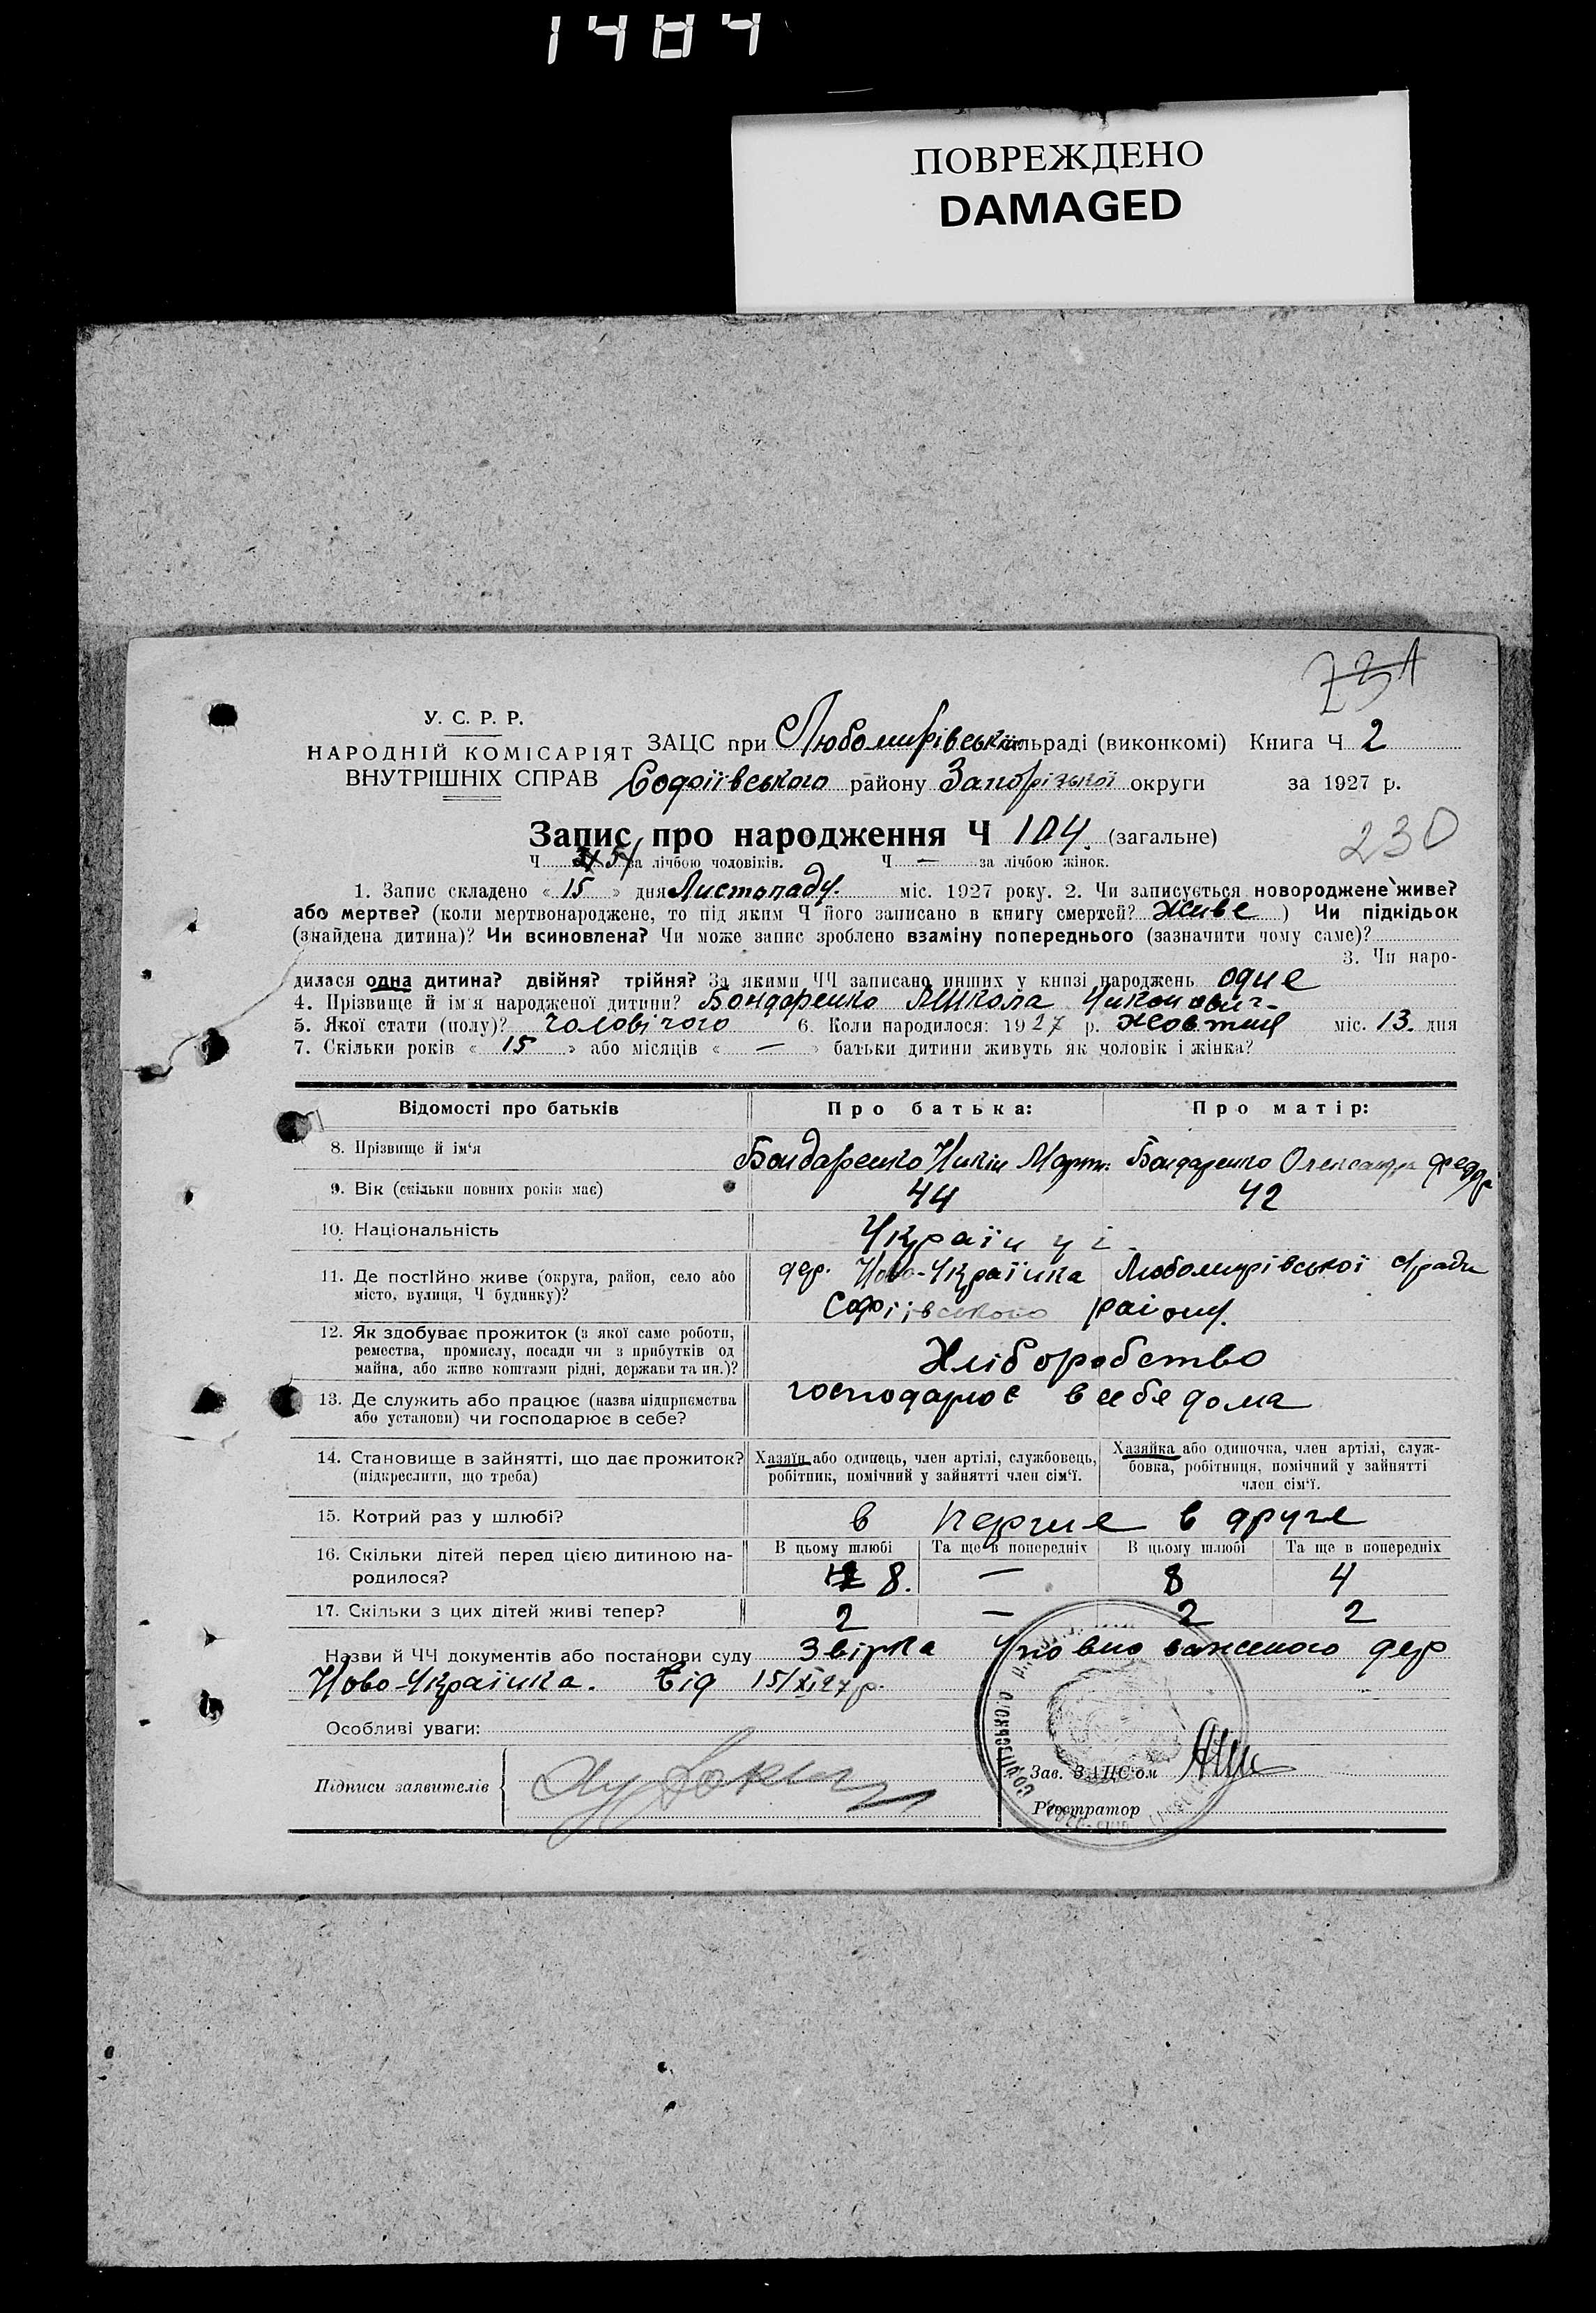 1484
ПОВРЕЖДЕНО
DAMAGED
231
У. С. Р. Р.
НАРОДНІЙ КОМІСАРІЯТ
ВНУТРІШНІХ СПРАВ
ЗАЦС при Любомирівській сільраді (виконкомі) Книга Ч 2
Софіївського району Запорізької округи за 1927 р.
Запис про народження Ч 104. (загальне)
230
Ч 51 за лічбою чоловіків. Ч — за лічбою жінок.
1. Запис складено « 15 » дня Листопаду. міс. 1927 року. 2. Чи записується новороджене живе?
або мертве? (коли мертвонароджене, то під яким Ч його записано в книгу смертей? Живе ) Чи підкідьок
(знайдена дитина)? Чи всиновлена? Чи може запис зроблено взаміну попереднього (зазначити чому саме)?
3. Чи наро-
дилася одна дитина? двійня? трійня? За якими ЧЧ записано инших у книзі народжень одне
4. Прізвище й ім'я народженої дитини? Бондаренко Микола
5. Якої стати (полу)? Чоловічого 6. Коли народилося: 1927 р. Жовтня міс. 13. дня
7. Скільки років « 15 » або місяців « — » батьки дитини живуть як чоловік і жінка?
Відомості про батьків Про батька: Про матір:
8. Прізвище й ім'я Бондаренко Никін Март. Бондаренко Олександра Федор
9. Вік (скільки повних років має) 44 42
10. Національність Українці.
11. Де постійно живе (округа, район, село або
місто, вулиця, Ч будинку)?
дер. Ново-Українка Любомирівської с/ради
Софіївського району.
12. Як здобуває прожиток (з якої саме роботи,
ремества, промислу, посади чи з прибутків од
майна, або живе коштами рідні, держави та ин.)?
Хліборобство
13. Де служить або працює (назва підприємства
або установи) чи господарює в себе?
господарює в себе дома
14. Становище в зайнятті, що дає прожиток?
(підкреслити, що треба)
Хазяїн або одинець, член артілі, службовець,
робітник, помічний у зайнятті член сім'ї.
Хазяйка або одиночка, член артілі, служ-
бовка, робітниця, помічний у зайнятті
член сім'ї.
15. Котрий раз у шлюбі? в перше в друге
16. Скільки дітей перед цією дитиною на-
родилося?
В цьому шлюбі Та ще в попередніх В цьому шлюбі Та ще в попередніх
8. — 8 4
17. Скільки з цих дітей живі тепер? 2 — 2 2
Назви й ЧЧ документів або постанови суду Звірка Уповноваженого дер
Ново-Українка. Від 15/XI 27 р.
Особливі уваги:
Підписи заявителів
Зав. ЗАЦС'ом
Реєстратор